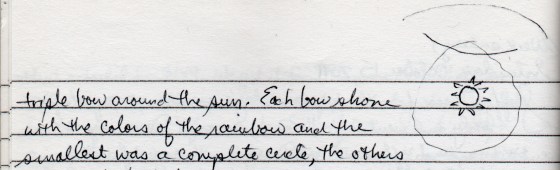 triple bow around the sun. Each bow shone
with the colors of the rainbow and the
smallest was a complete circle, the others